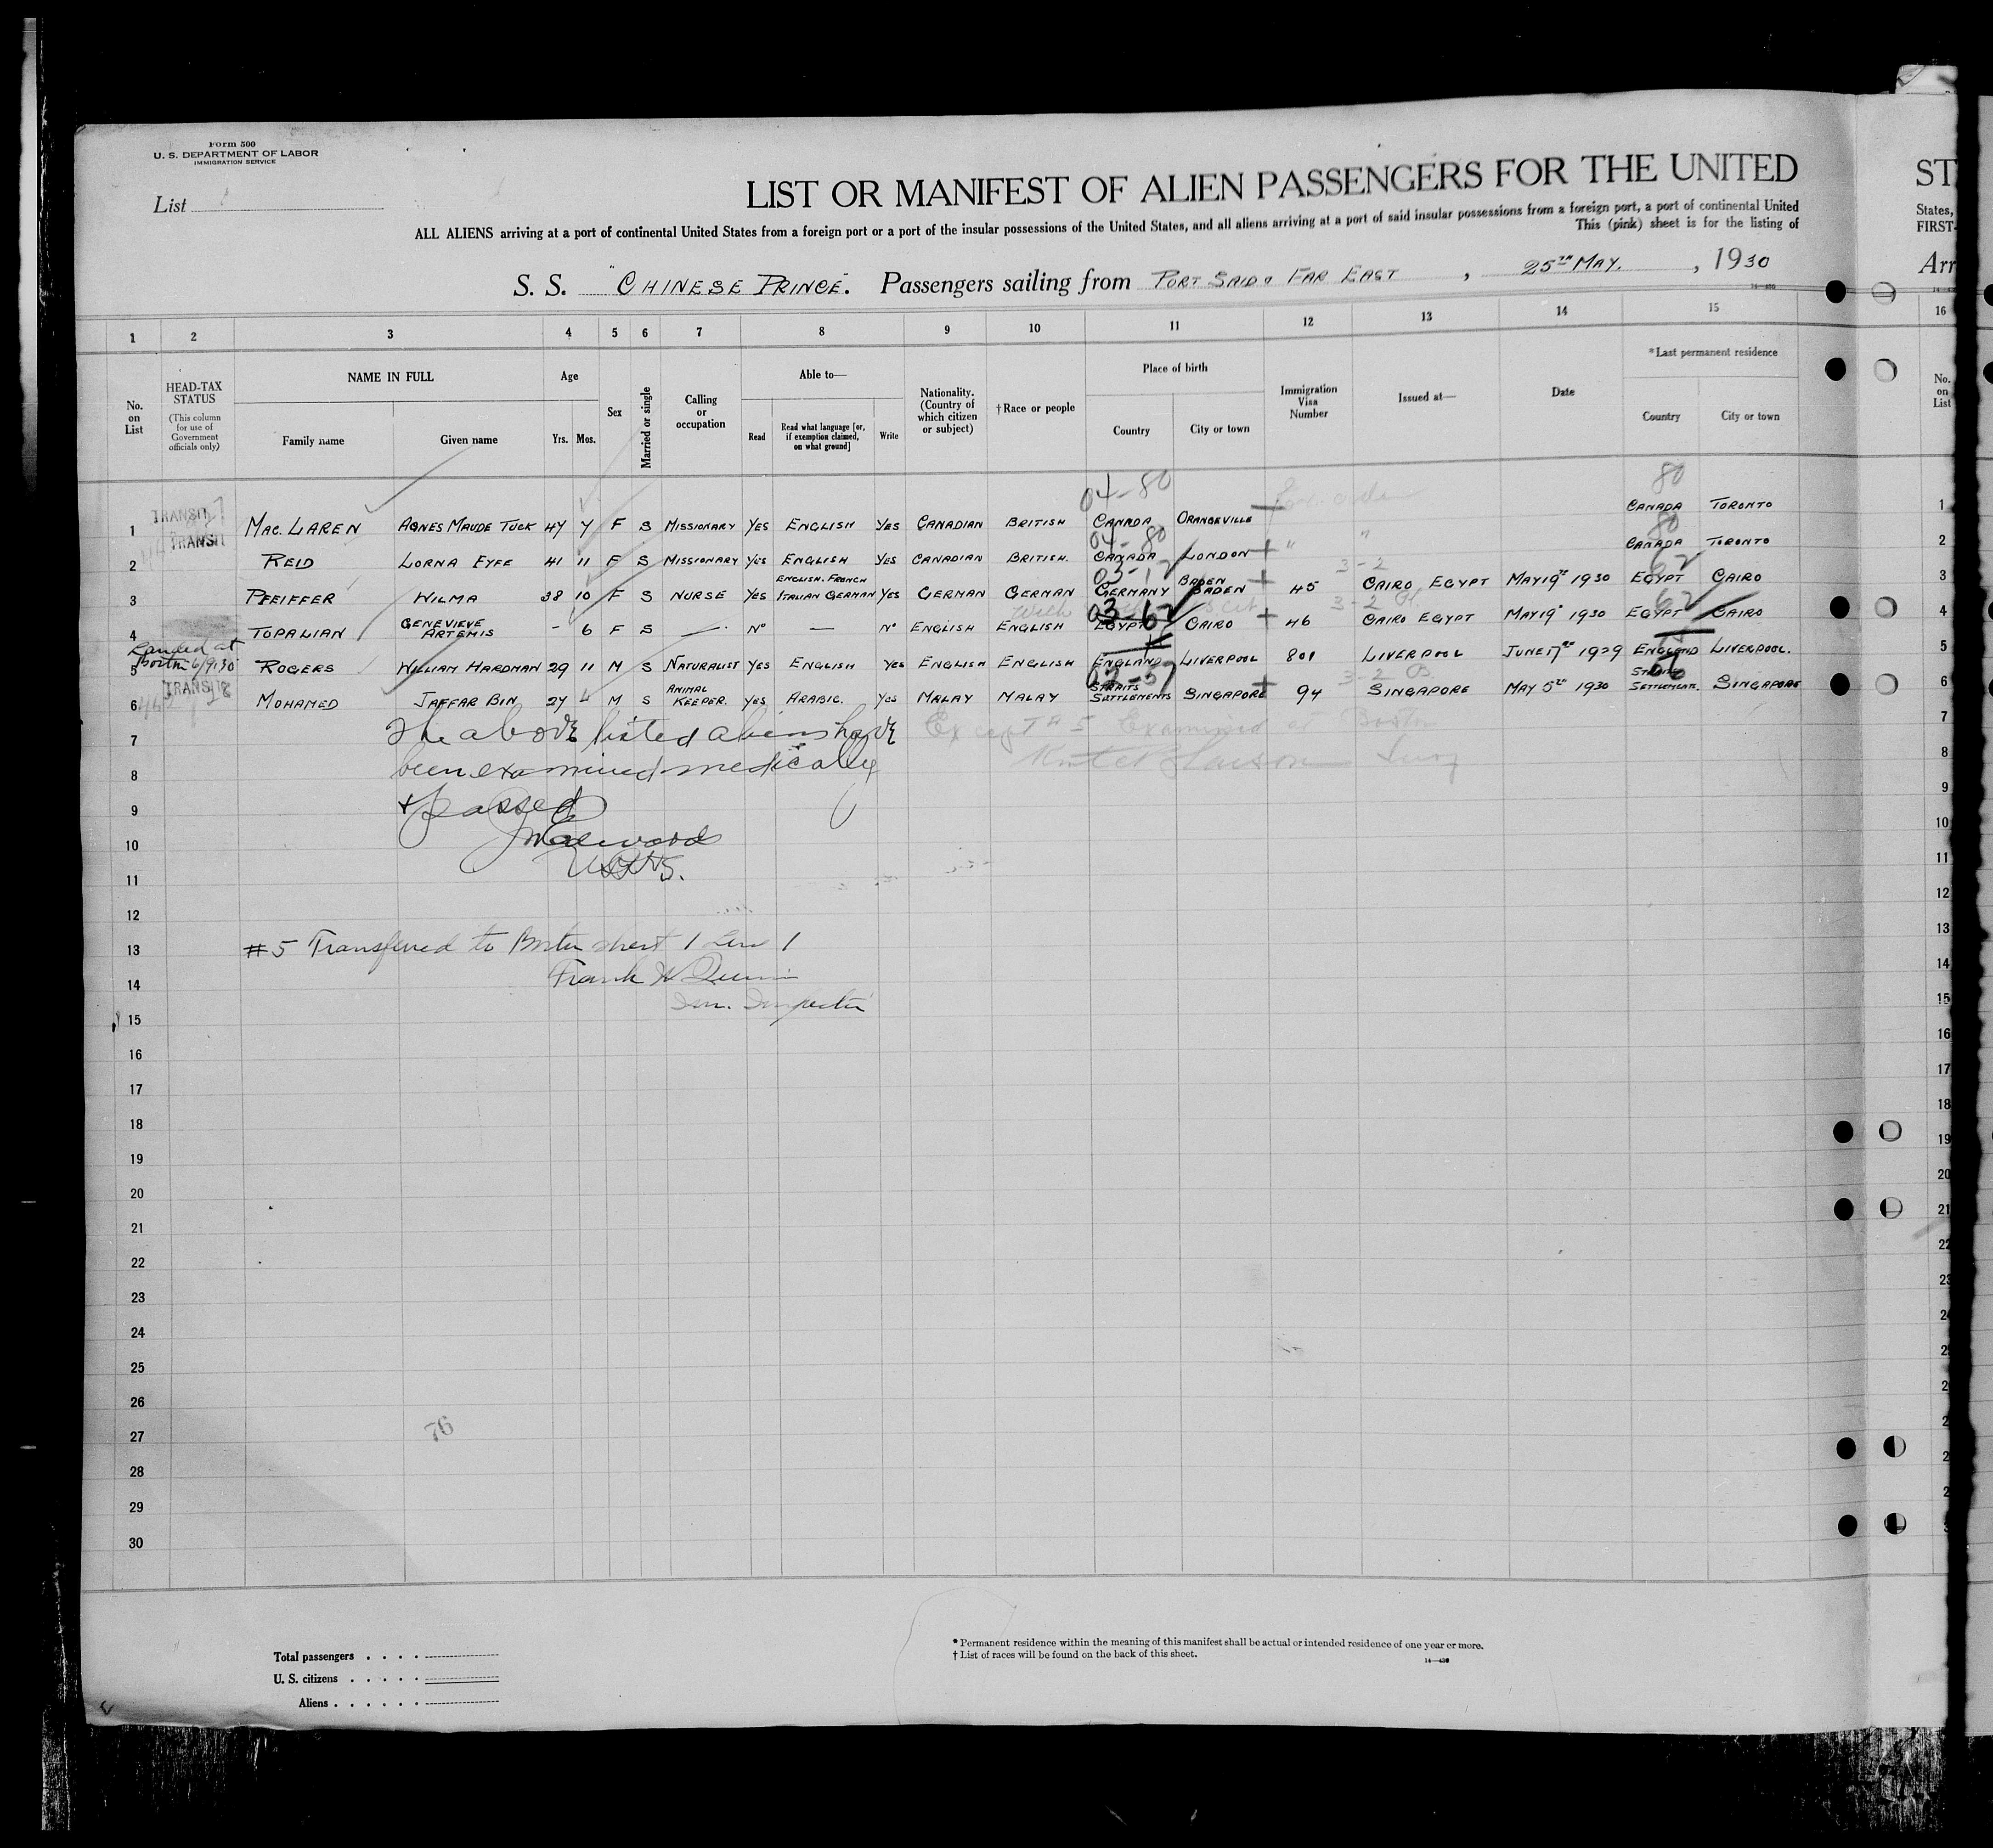 Form 500
U. S. DEPARTMENT OF LABOR
IMMIGRATION SERVICE
List
LIST OR MANIFEST OF ALIEN PASSENGERS FOR THE UNITED
ST
ALL ALIENS arriving at a port of continental United States from a foreign port or a port of the insular possessions of the United States, and all aliens arriving at a port of said insular possessions from a foreign port, a port of continental United
States,
This (pink) sheet is for the listing of
FIRST-
S. S. "CHINESE PRINCE". Passengers sailing from PORT SAID & FAR EAST , 25TH MAY. , 1930
Arr
1 2 3 4 5 6 7 8 9 10 11 12 13 14 15 16
No. on List
HEAD-TAX STATUS
(This column for use of Government officials only)
NAME IN FULL
Family name
Given name
Age
Yrs. Mos.
Sex
Married or single
Calling or occupation
Able to—
Read
Read what language [or, if exemption claimed, on what ground]
Write
Nationality. (Country of which citizen or subject)
†Race or people
Place of birth
Country
City or town
Immigration Visa Number
Issued at—
Date
*Last permanent residence
Country
City or town
No. on List
04-80 80
1 TRANSIT MAC LAREN AGNES MAUDE TUCK 47 7 F S MISSIONARY YES ENGLISH YES CANADIAN BRITISH CANADA ORANGEVILLE CANADA TORONTO 1
04-80 80
2 TRANSIT REID LORNA FYFE 41 11 F S MISSIONARY YES ENGLISH YES CANADIAN BRITISH. CANADA LONDON " " CANADA TORONTO 2
3-2 62
3 PFEIFFER WILMA 38 10 F S NURSE YES ENGLISH. FRENCH ITALIAN GERMAN YES GERMAN GERMAN GERMANY BADEN BADEN 45 CAIRO EGYPT MAY 19TH 1930 EGYPT CAIRO 3
03-62 3-2 62
4 TOPALIAN GENEVIEVE ARTEMIS - 6 F S — No — No ENGLISH ENGLISH EGYPT CAIRO 46 CAIRO EGYPT MAY 19TH 1930 EGYPT CAIRO 4
Landed at Boston 6/9/30
5 ROGERS WILLIAM HARDMAN 29 11 M S NATURALIST YES ENGLISH YES ENGLISH ENGLISH ENGLAND LIVERPOOL 801 LIVERPOOL JUNE 17TH 1929 ENGLAND LIVERPOOL. 5
02-57 3-2
6 TRANSIT MOHAMED JAFFAR BIN 27 4 M S ANIMAL KEEPER. YES ARABIC. YES MALAY MALAY STRAITS SETTLEMENTS SINGAPORE 94 SINGAPORE MAY 5TH 1930 STRAITS SETTLEMENTS. SINGAPORE 6
7 The above listed aliens have Except #5 Examined at Boston 7
8 been examined medically 8
9 & passed 9
10 10
11 USPHS. 11
12 12
13 #5 Transferred to Boston sheet 1 Line 1 13
14 Frank W Quinn 14
15 Im. Inspector 15
16 16
17 17
18 18
19 19
20 20
21 21
22 22
23 23
24
25
26
27
28
29
30
76
Total passengers
U. S. citizens
Aliens
* Permanent residence within the meaning of this manifest shall be actual or intended residence of one year or more.
† List of races will be found on the back of this sheet.